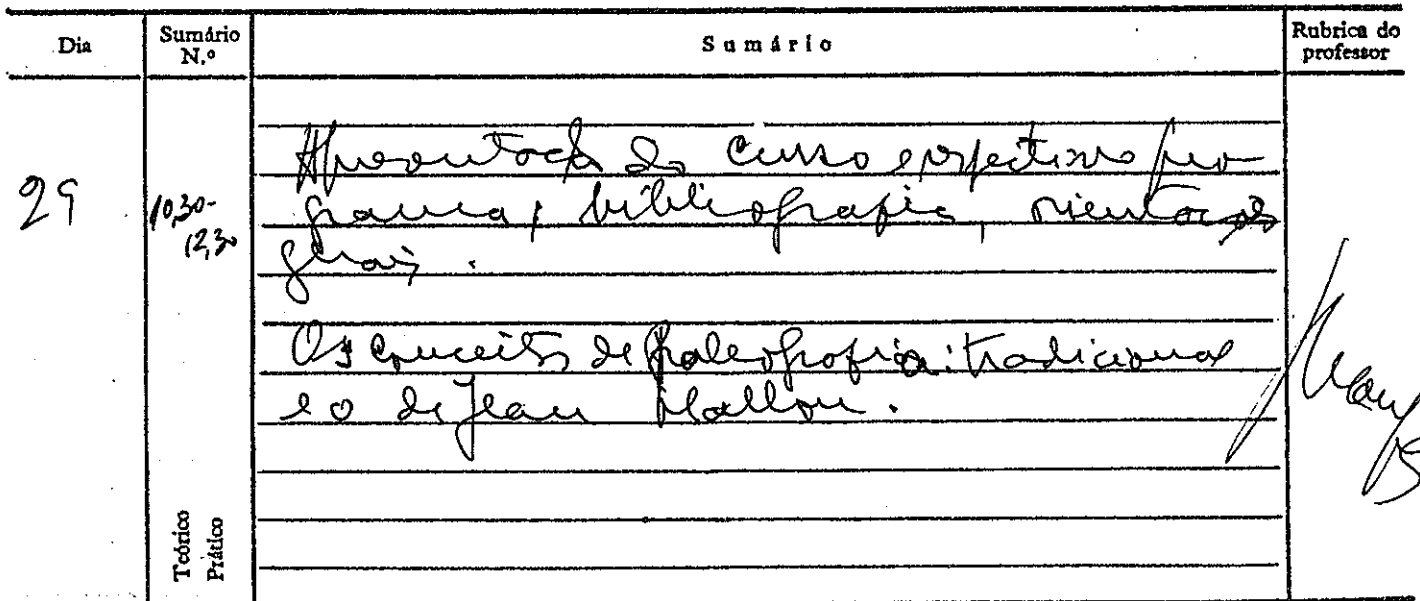 Dia
Sumário N.º
Sumário
Rubrica do professor
29
10,30-
12,30
Apresentação do curso e respectivo pro
grama, bibliografia, orientações
gerais.
Os conceitos de Paleografia: tradicional
e o de Jean Mallon.
Teórico
Prático